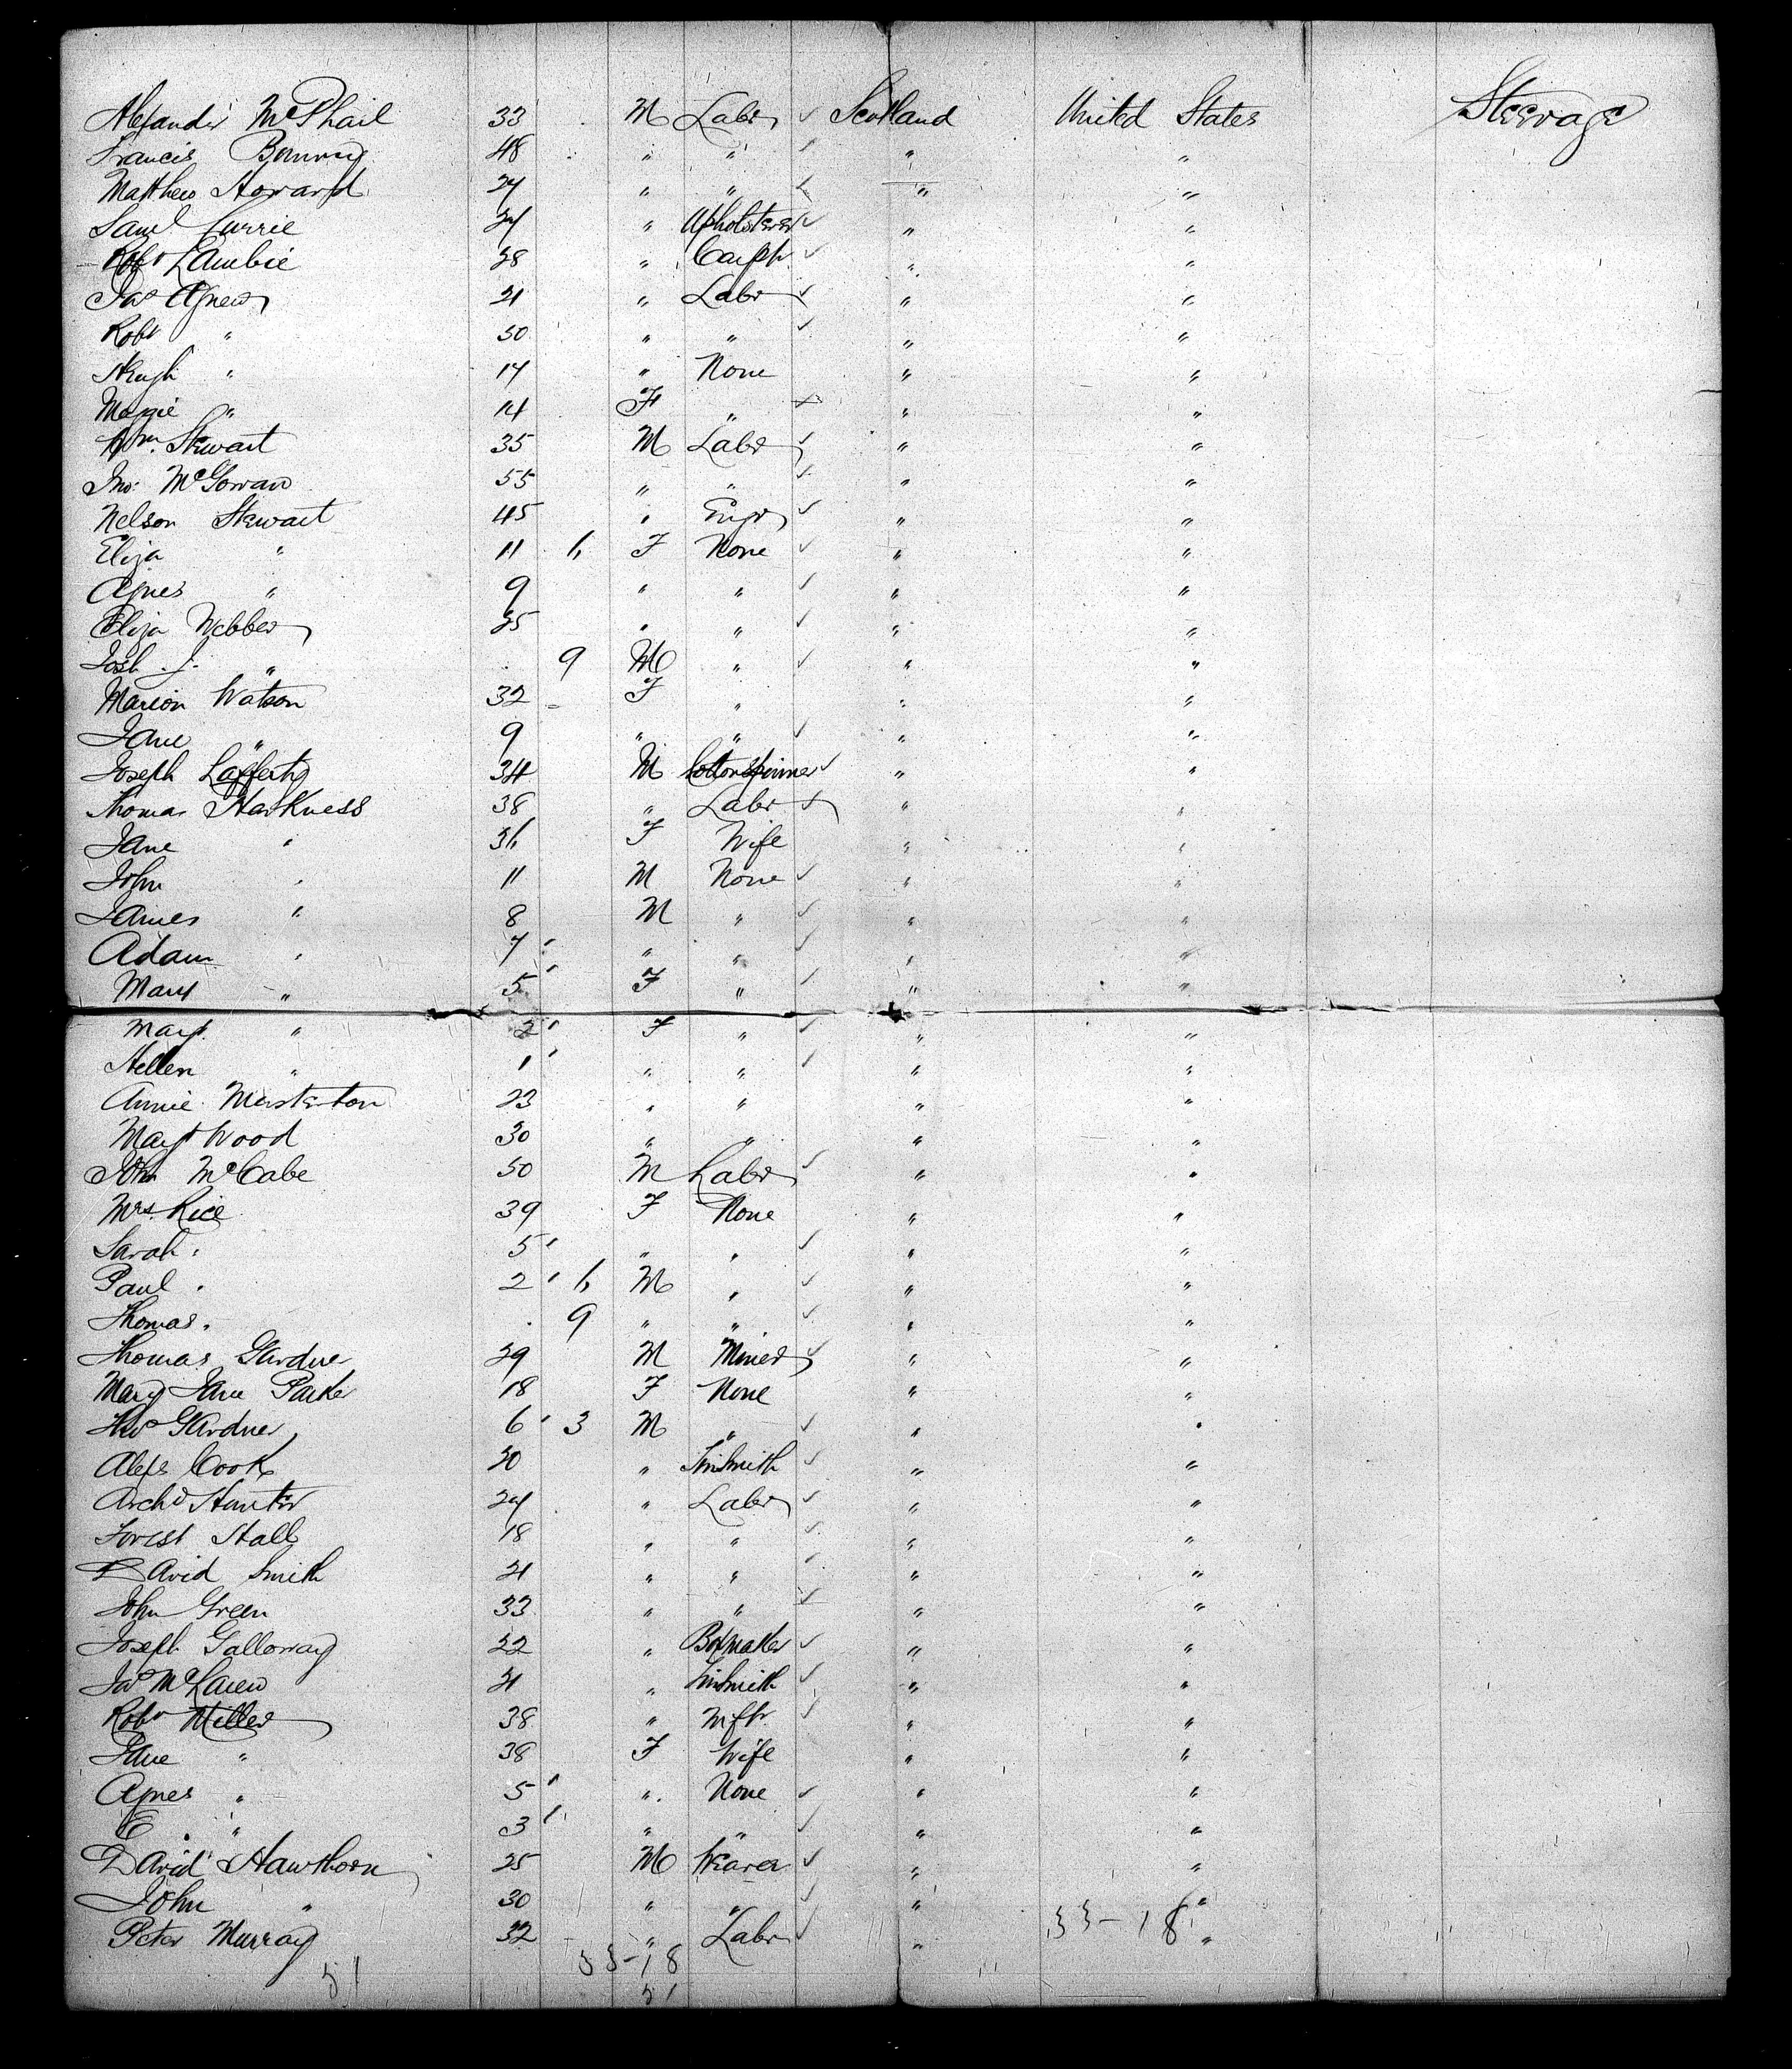 Alexander McPhail 33 M Labr ✓ Scotland United States Steerage
Francis 48 " " ✓ " "
Matthew Howard 24 " " ✓ " "
Saml Currie 24 " Upholsterer ✓ " "
Robt Lambie 28 " Carptr ✓ " "
Jas Agnew 21 " Labr ✓ " "
Robt " 50 " " ✓ " "
Hugh " 17 " None " "
Maggie " 14 F " ✓ " "
Wm. Stewart 35 M Labr ✓ " "
Jno: McGowan 55 " " ✓ " "
Nelson Stewart 45 " Engr ✓ " "
Eliza " 11 6 F None ✓ " "
Agnes " 9 " " ✓ " "
Eliza Webber 25 " " ✓ " "
Josh J. " 9 M " ✓ " "
Marion Watson 32 F " " "
Jane " 9 " " ✓ " "
Joseph Lafferty 34 M Cottonspinner ✓ " "
Thomas Harkness 38 " Labr ✓ " "
Jane " 36 F Wife " "
John " 11 M None ✓ " "
James " 8 M " ✓ " "
Adam " 7 " " ✓ " "
Mary " 5 F " ✓ " "
Margt. " 2 F " ✓ " "
Hellen " 1 " " ✓ " "
Annie Masterton 23 " " " "
Margt Wood 30 " " " "
John McCabe 50 M Labr ✓ " "
Mrs. Rice 39 F None " "
Sarah " 5 " " ✓ " "
Paul " 2 6 M " ✓ " "
Thomas " 9 " " ✓ " "
Thomas Gardner 29 M Miner ✓ " "
Mary Jane Parker 18 F None " "
Thos Gardner 6 3 M " ✓ " "
Alexr Cook 20 " Tinsmith ✓ " "
Archd Hunter 24 " Labr ✓ " "
Forest Hall 18 " " ✓ " "
David Smith 21 " " ✓ " "
John Green 33 " " ✓ " "
Joseph Galloway 22 " Boxmaker ✓ " "
Jas McLaren 21 " Tinsmith ✓ " "
Robt Miller 38 " Mftr. ✓ " "
Jane " 38 F Wife " "
Agnes " 5 " None ✓ " "
E. " 3 " " ✓ " "
David Hawthorn 25 M Weaver ✓ " "
John " 30 " " ✓ " "
Peter Murray 32 " Labr ✓ " "
33-18
51 33-18
51